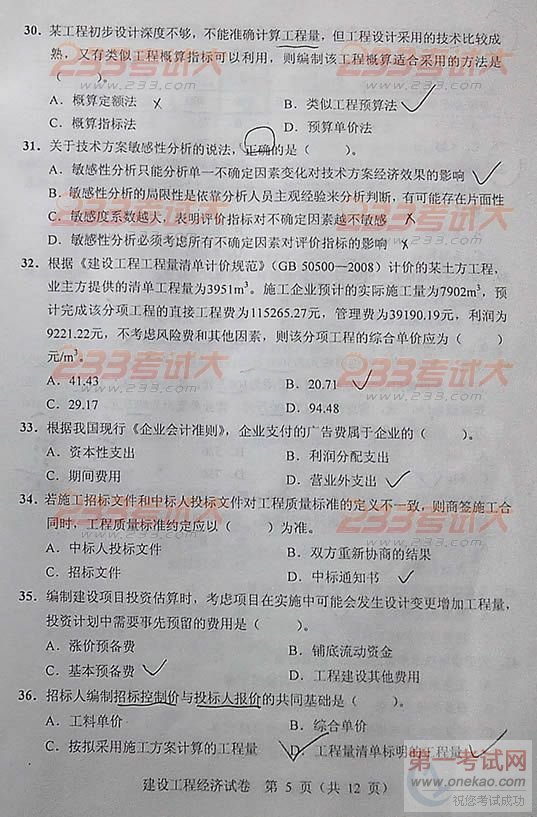 30. 某工程初步设计深度不够，不能准确计算工程量，但工程设计采用的技术比较成
熟，又有类似工程概算指标可以利用，则编制该工程概算适合采用的方法是
（    ）。
A．概算定额法    B．类似工程预算法
C．概算指标法    D．预算单价法
31. 关于技术方案敏感性分析的说法，正确的是（    ）。
A．敏感性分析只能分析单一不确定因素变化对技术方案经济效果的影响
B．敏感性分析的局限性是依靠分析人员主观经验来分析判断，有可能存在片面性
C．敏感度系数越大，表明评价指标对不确定因素越不敏感
D．敏感性分析必须考虑所有不确定因素对评价指标的影响
32. 根据《建设工程工程量清单计价规范》（GB 50500—2008）计价的某土方工程，
业主方提供的清单工程量为3951m³。施工企业预计的实际施工量为7902m³，预
计完成该分项工程的直接工程费为115265.27元，管理费为39190.19元，利润为
9221.22元，不考虑风险费和其他因素，则该分项工程的综合单价应为（    ）
元/m³。
A．41.43    B．20.71
C．29.17    D．94.48
33. 根据我国现行《企业会计准则》，企业支付的广告费属于企业的（    ）。
A．资本性支出    B．利润分配支出
C．期间费用    D．营业外支出
34. 若施工招标文件和中标人投标文件对工程质量标准的定义不一致，则商签施工合
同时，工程质量标准约定应以（    ）为准。
A．中标人投标文件    B．双方重新协商的结果
C．招标文件    D．中标通知书
35. 编制建设项目投资估算时，考虑项目在实施中可能会发生设计变更增加工程量，
投资计划中需要事先预留的费用是（    ）。
A．涨价预备费    B．铺底流动资金
C．基本预备费    D．工程建设其他费用
36. 招标人编制招标控制价与投标人报价的共同基础是（    ）。
A．工料单价    B．综合单价
C．按拟采用施工方案计算的工程量    D．工程量清单标明的工程量
建设工程经济试卷  第 5 页（共 12 页）
233考试大
www.233.com
第一考试网
www.onekao.com
祝您考试成功